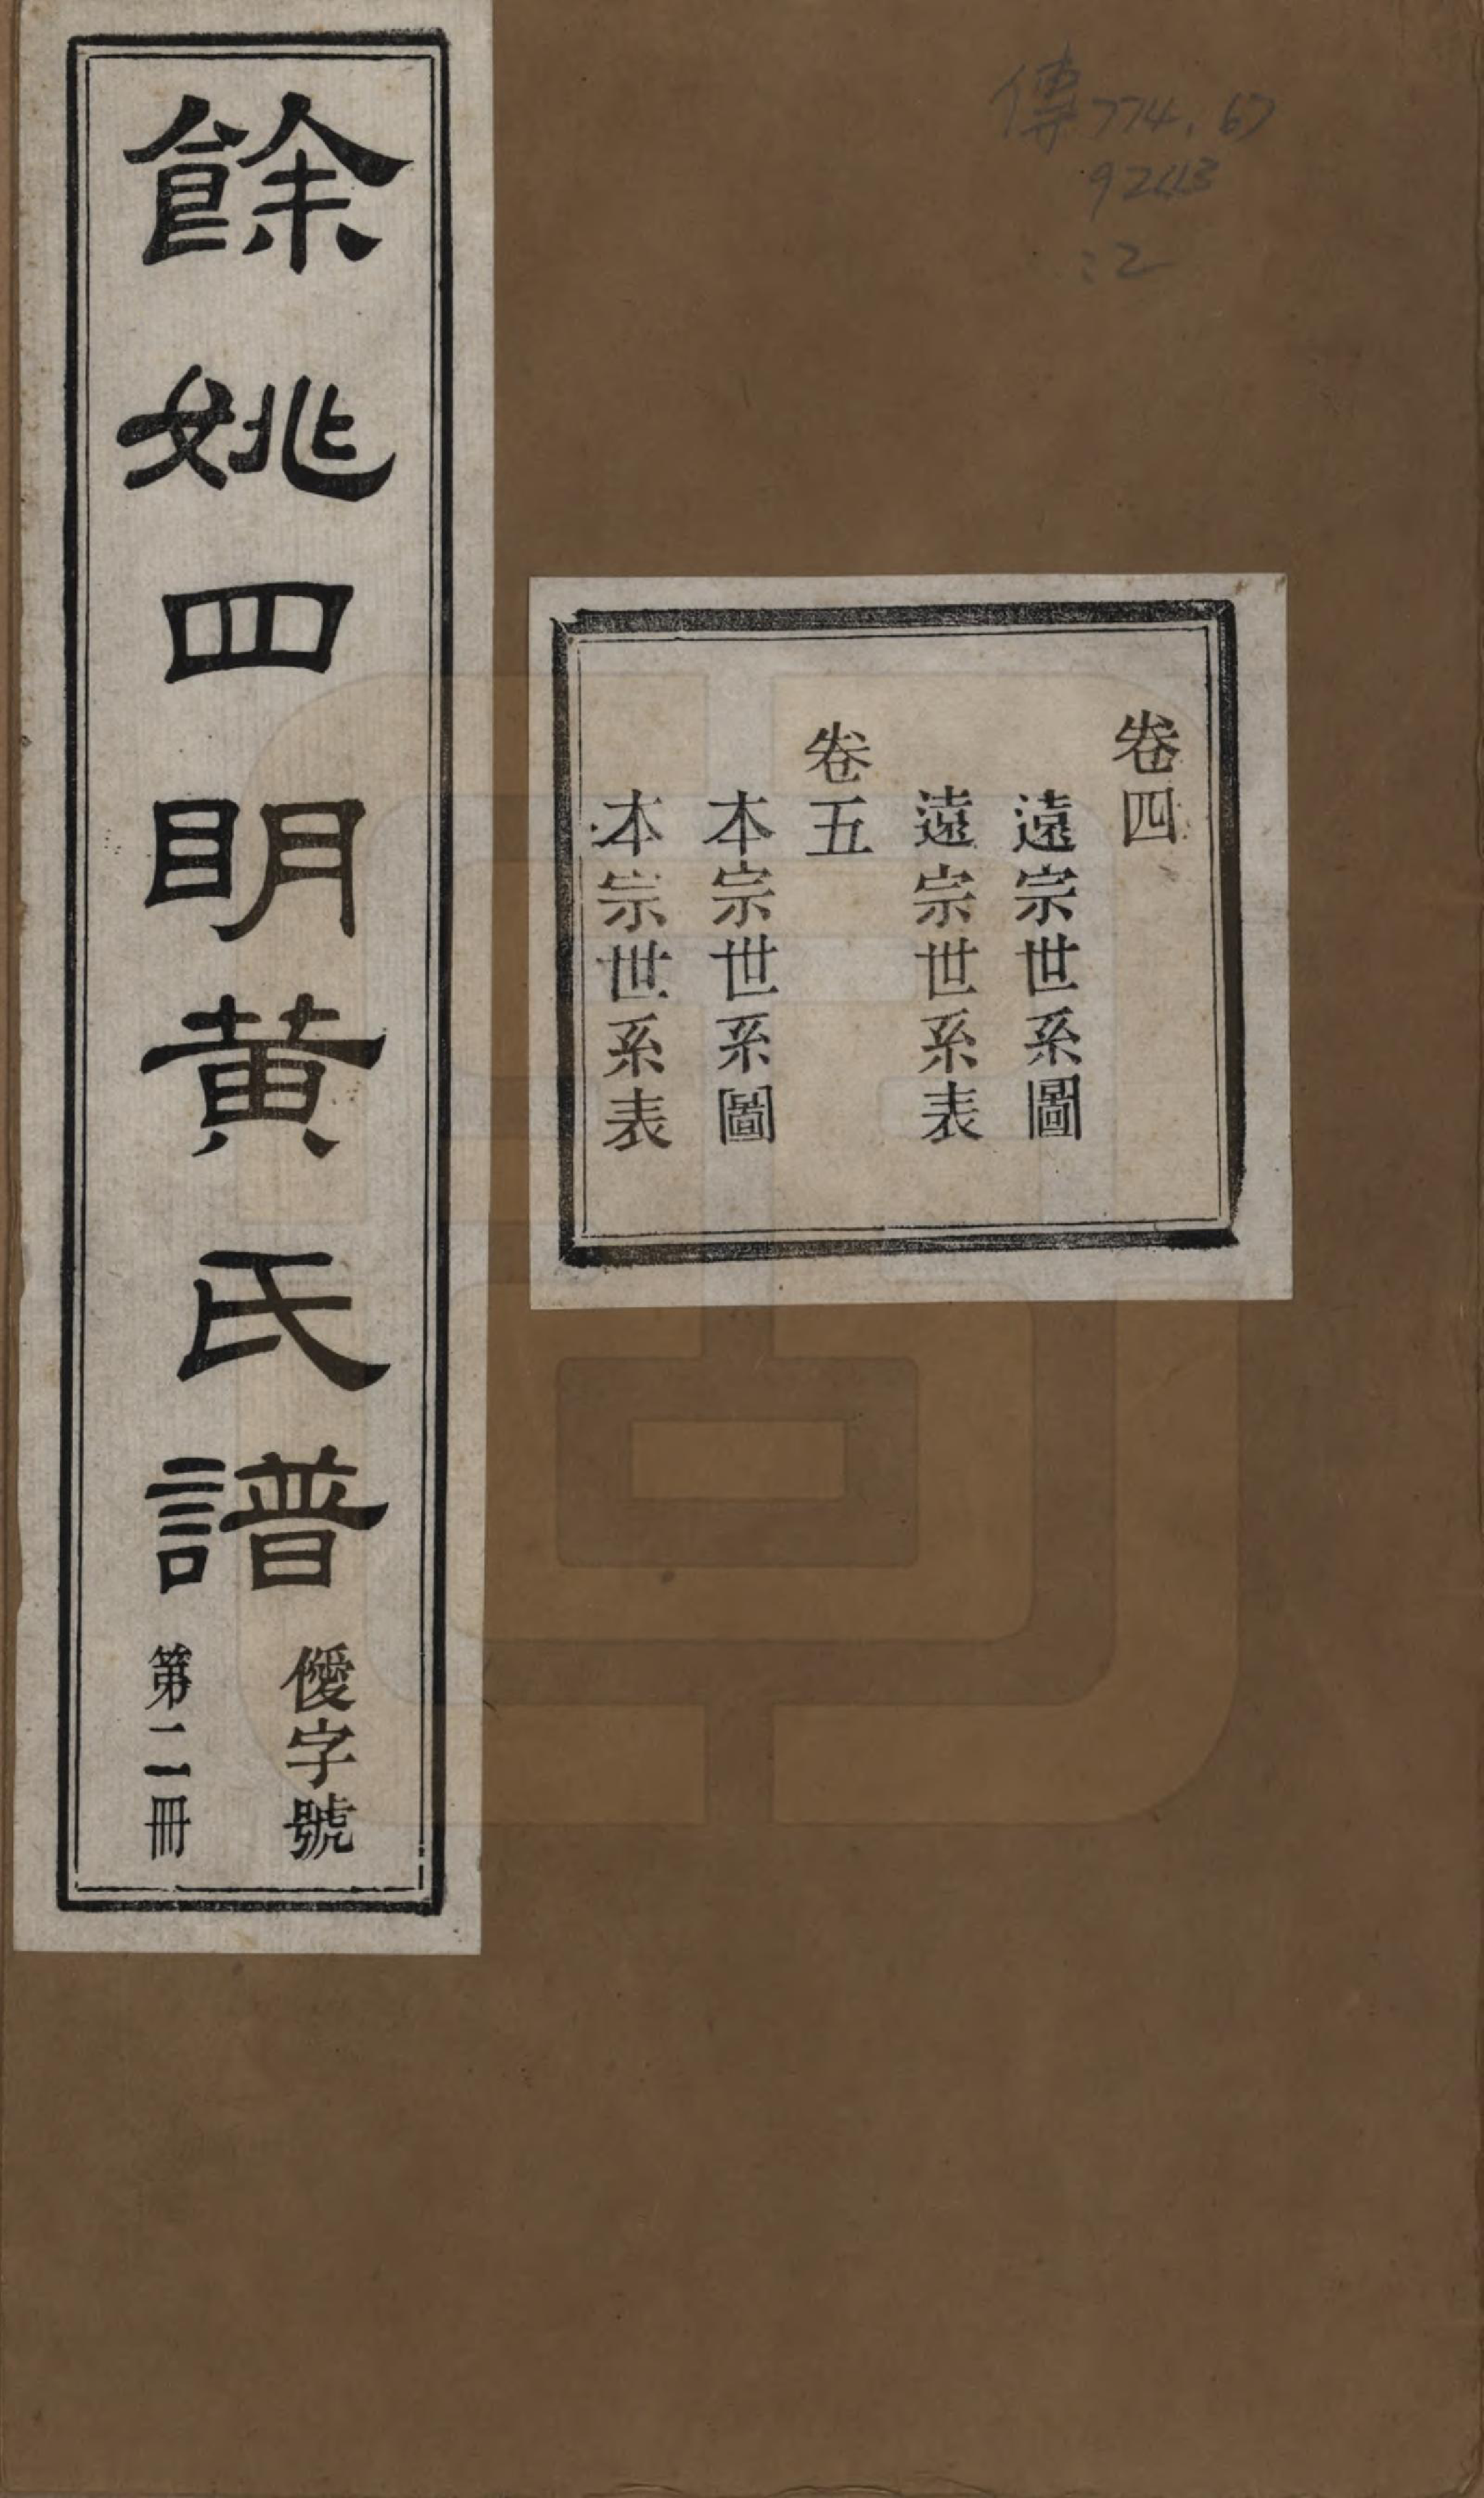 餘姚四明黃氏譜
僾字號
第二冊
卷四
遠宗世系圖
遠宗世系表
卷五
本宗世系圖
本宗世系表
傳774.67
9243
:2